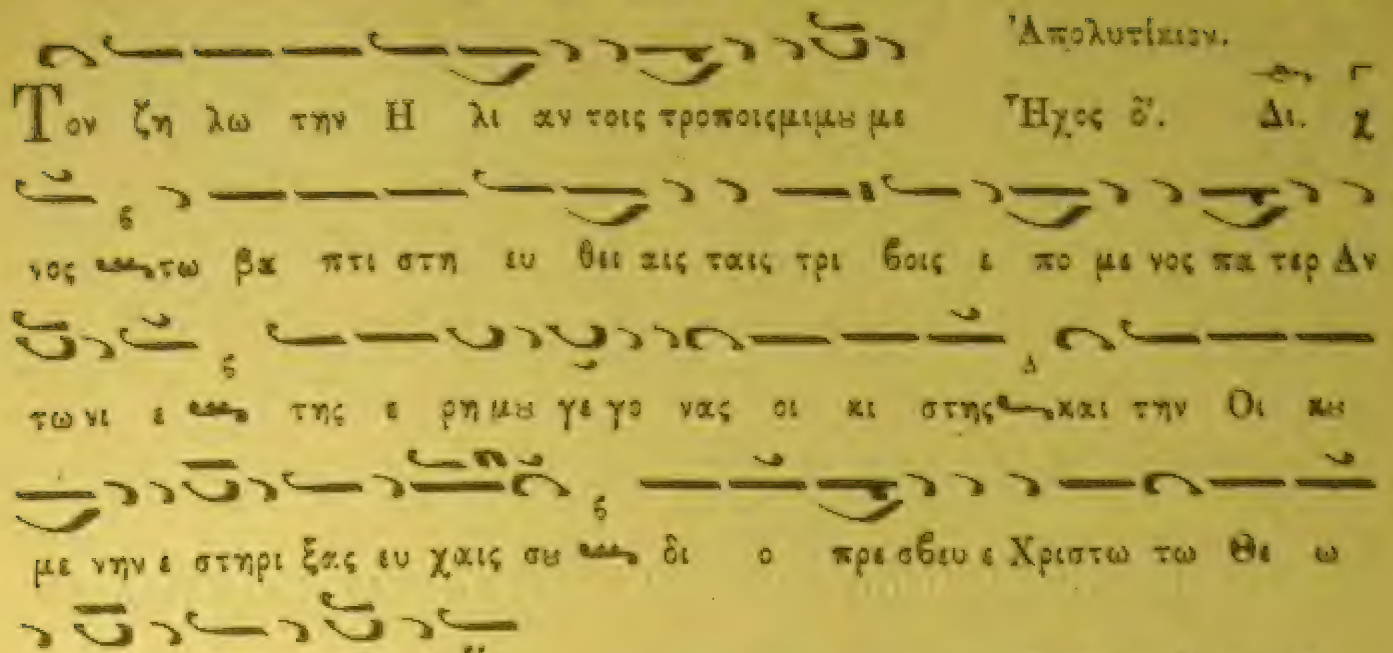 Ἀπολυτίκιον.
Τον ζη λω την Η λι αν τοις τροποις μιμȣ με Ἦχος δ΄. Δι. χ
νος τω βα πτι στη ευ θει αις ταις τρι βοις ε πο με νος πα τερ Αν
τω νι ε της ε ρη μȣ γε γο νας οι κι στης και την Οι κȣ
με νην ε στηρι ξας ευ χαις σȣ δι ο πρε σβευ ε Χριστω τω Θε ω